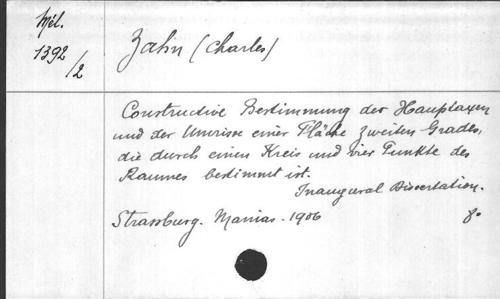 Mél.
1392
/2
Zahn (Charles)
Constructive Bestimmung der Hauptaxen
und der Umrisse einer Fläche zweiten Grades,
die durch einen Kreis und vier Punkte des
Raumes bestimmt ist.
Inaugural Dissertation.
Strassburg. Manias. 1906 8°